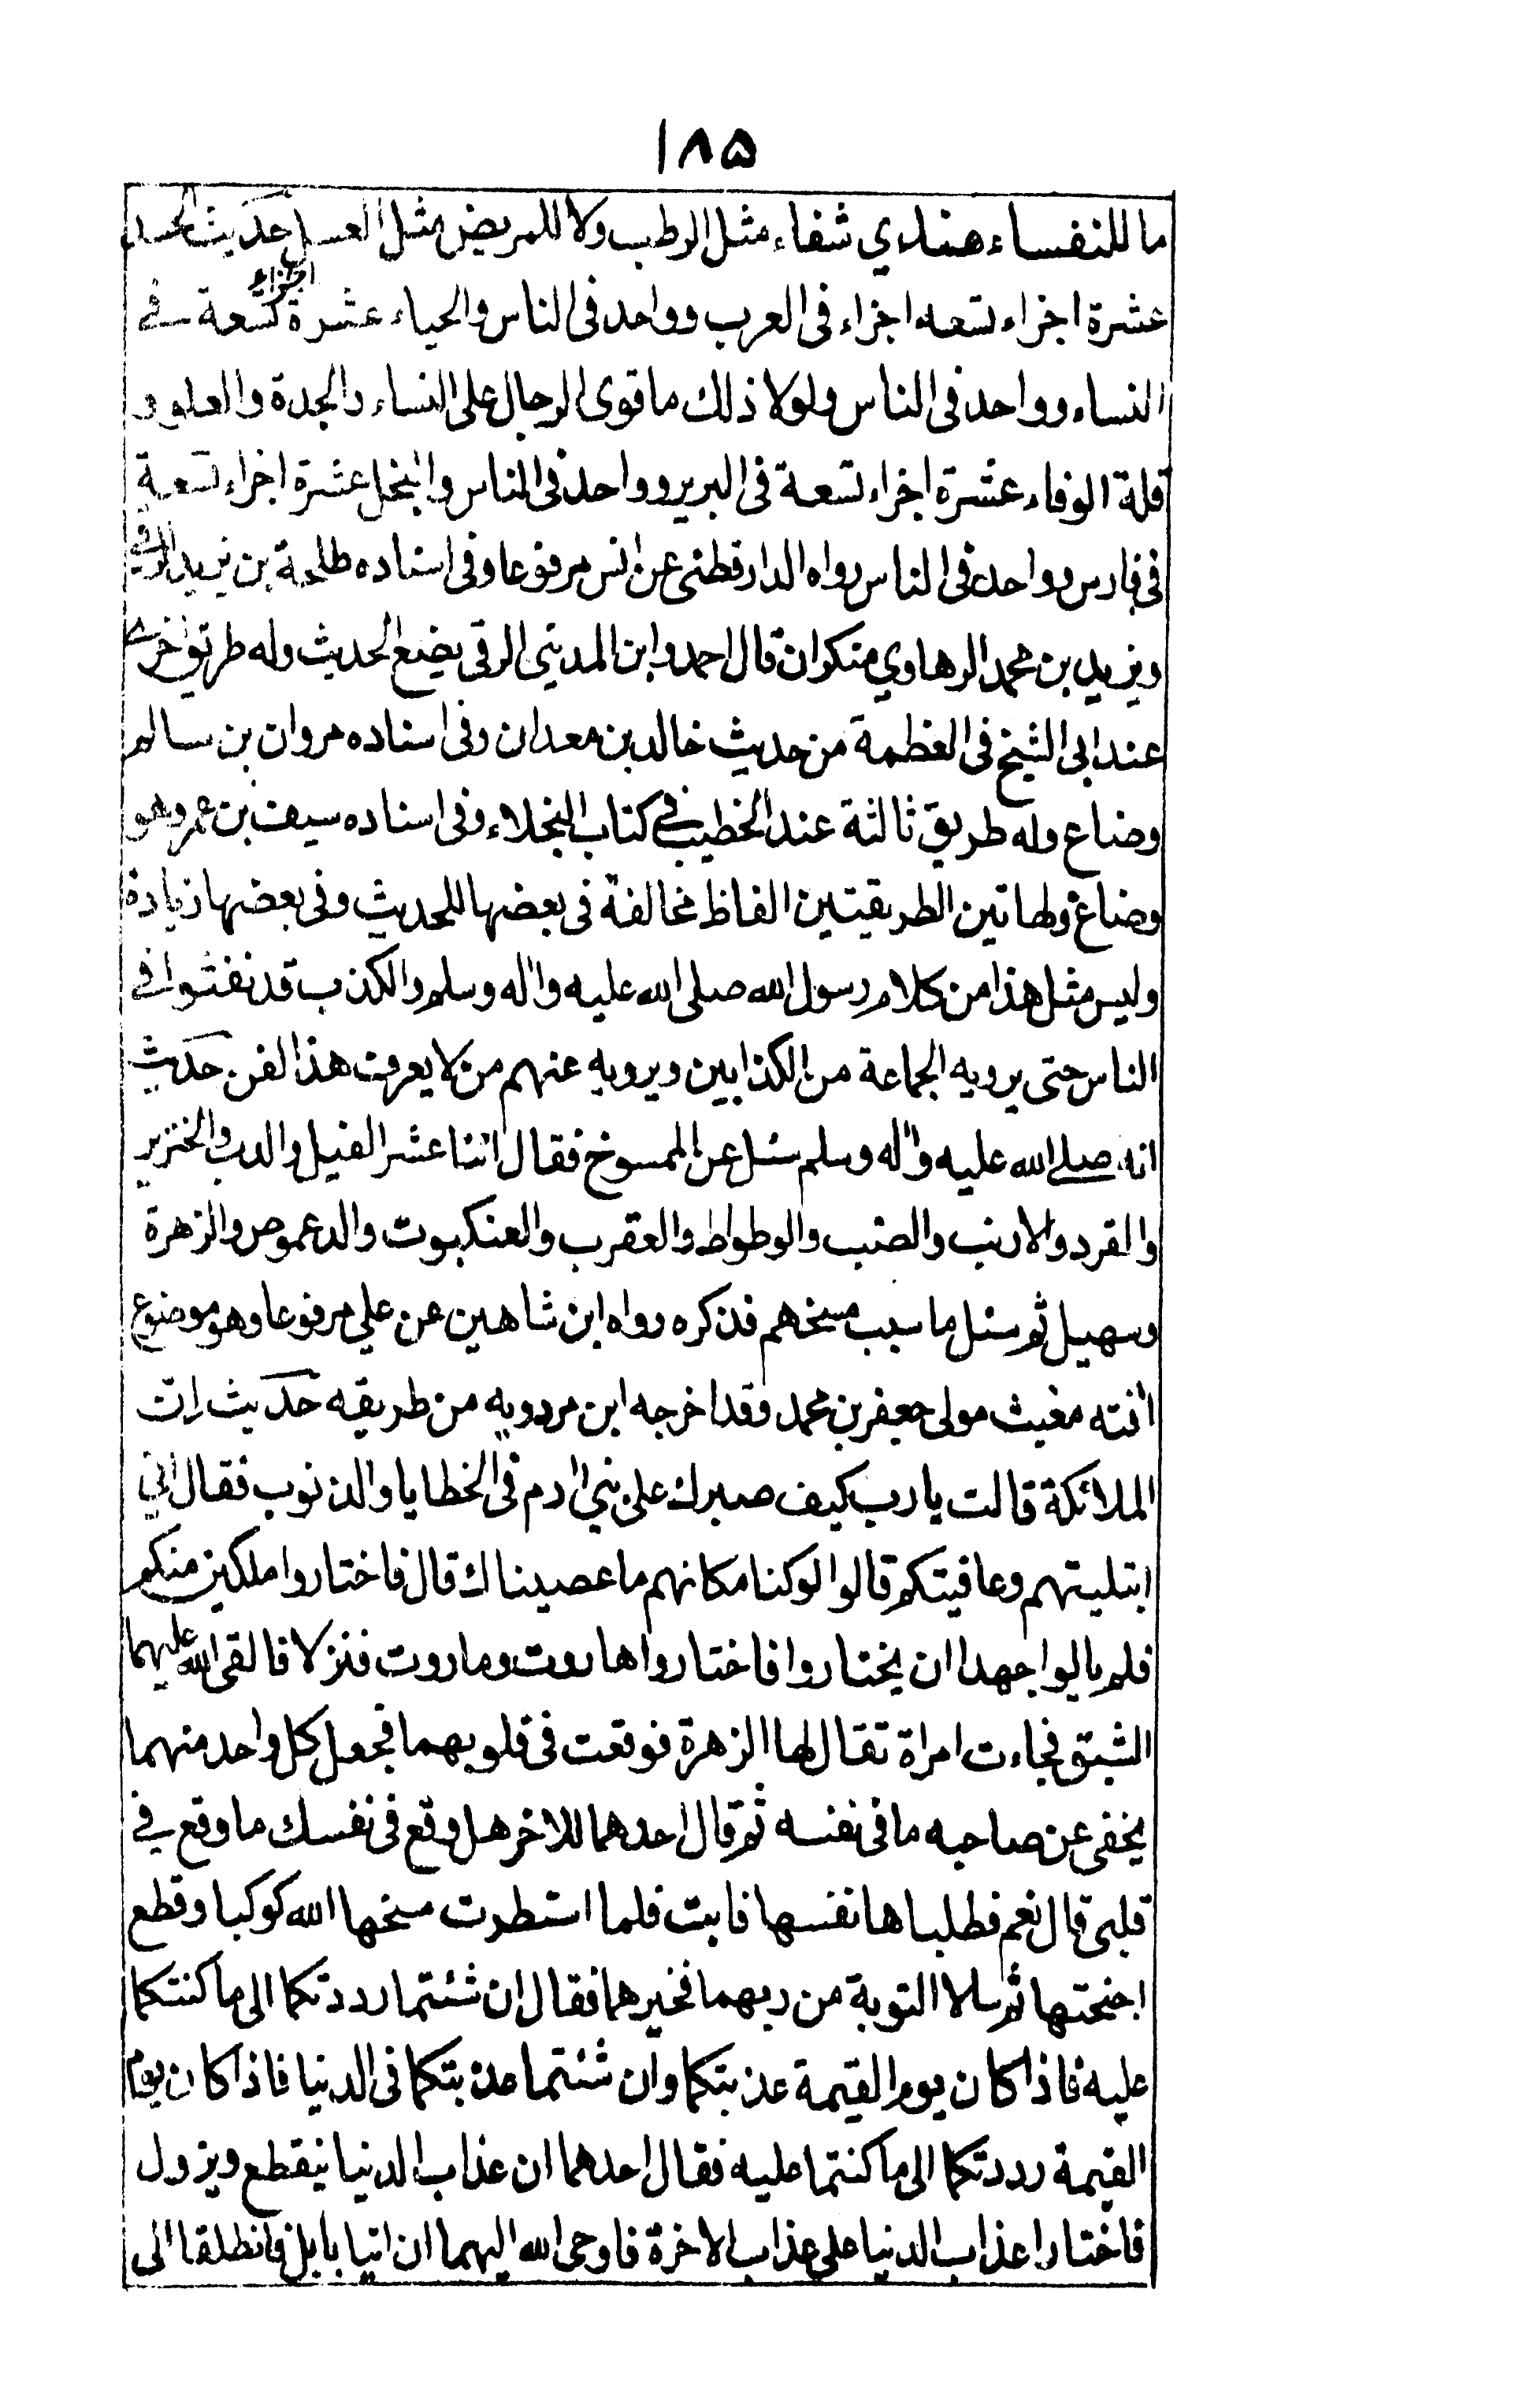 ١٨٥
ما للنفساء عندي شفاء مثل الرطب ولا للمريض مثل العسل حديث الحسد
عشرة اجزاء تسعه اجزاء فى العرب وواحد فى الناس والحياء عشرة اجزاء تسعة في
النساء وواحد فى الناس ولولا ذلك ما قوى الرجال على النساء والحدة والعلو و
قلة الوفاء عشرة اجزاء تسعة فى البربر وواحد فى الناس والبخل عشرة اجزاء تسعة
فى فارس وواحد فى الناس رواه الدارقطنى عن انس مرفوعا وفى اسناده طلحة بن زيد الرقي
ويزيد بن محمد الرهاوي متكوان قال احمد وابن المديني الرقى يضع الحديث وله طريق اخرى
عند ابى الشيخ فى العظمة من حديث خالد بن معدان وفى اسناده مروان بن سالم
وضاع وله طريق ثالثة عند الخطيب في كتاب البخلاء وفى اسناده سيف بن عمر وهو
وضاع ولهاتين الطريقتين الفاظ مخالفة فى بعضها للحديث وفى بعضها زيادة
وليس مثل هذا من كلام رسول الله صلى الله عليه واله وسلم والكذب قد نفثوا في
الناس حتى يرويه الجماعة من الكذابين ويرويه عنهم من لا يعرف هذا الفن حديث
انه صلى الله عليه واله وسلم سئل عن المسوخ فقال اثنا عشر الفيل والدب والخنزير
والقرد والارنب والضب والوطواط والعقرب والعنكبوت والدعموص والزهرة
وسهيل ثم سئل ما سبب مسخهم فذكره رواه ابن شاهين عن علي مرفوعا وهو موضوع
آفته مغيث مولى جعفر بن محمد وقد اخرجه ابن مردويه من طريقه حديث ان
الملائكة قالت يا رب كيف صبرك على بني ادم فى الخطايا والذنوب فقال اني
ابتليتهم وعافيتكم قالوا لو كنا مكانهم ما عصيناك قال فاختاروا ملكين منكم
فلم يالوا جهدا ان يختاروا فاختاروا هاروت وماروت فنزلا فالقى الله عليهما
الشبق فجاءت امراة تقال لها الزهرة فوقعت فى قلوبهما فجعل كل واحد منهما
يخفى عن صاحبه ما فى نفسه ثم قال احدهما للاخر هل وقع فى نفسك ما وقع في
قلبى قال نعم فطلباها نفسها فابت فلما استطرت مسخها الله كوكبا وقطع
اجنحتها ثم سلا التوبة من ربهما فخيرهما فقال ان شئتما رددتكما الى ما كنتكما
عليه فاذا كان يوم القيمة عذبتكما وان شئتما عذبتكما فى الدنيا فاذا كان يوم
القيمة رددتكما الى ما كنتما عليه فقال احدهما ان عذاب الدنيا ينقطع ويزول
فاختارا عذاب الدنيا على عذاب الاخرة فاوحى الله اليهما ان اتيا بابل فانطلقا الى